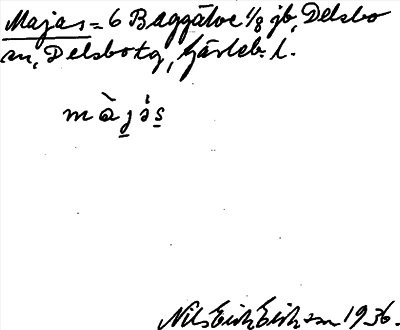 Majas = 6 Baggätve 1/8 jb, Delsbo
sn, Delsbo tg, Gävleb. l.
màjás
Nils Erik Eriksson 1936.